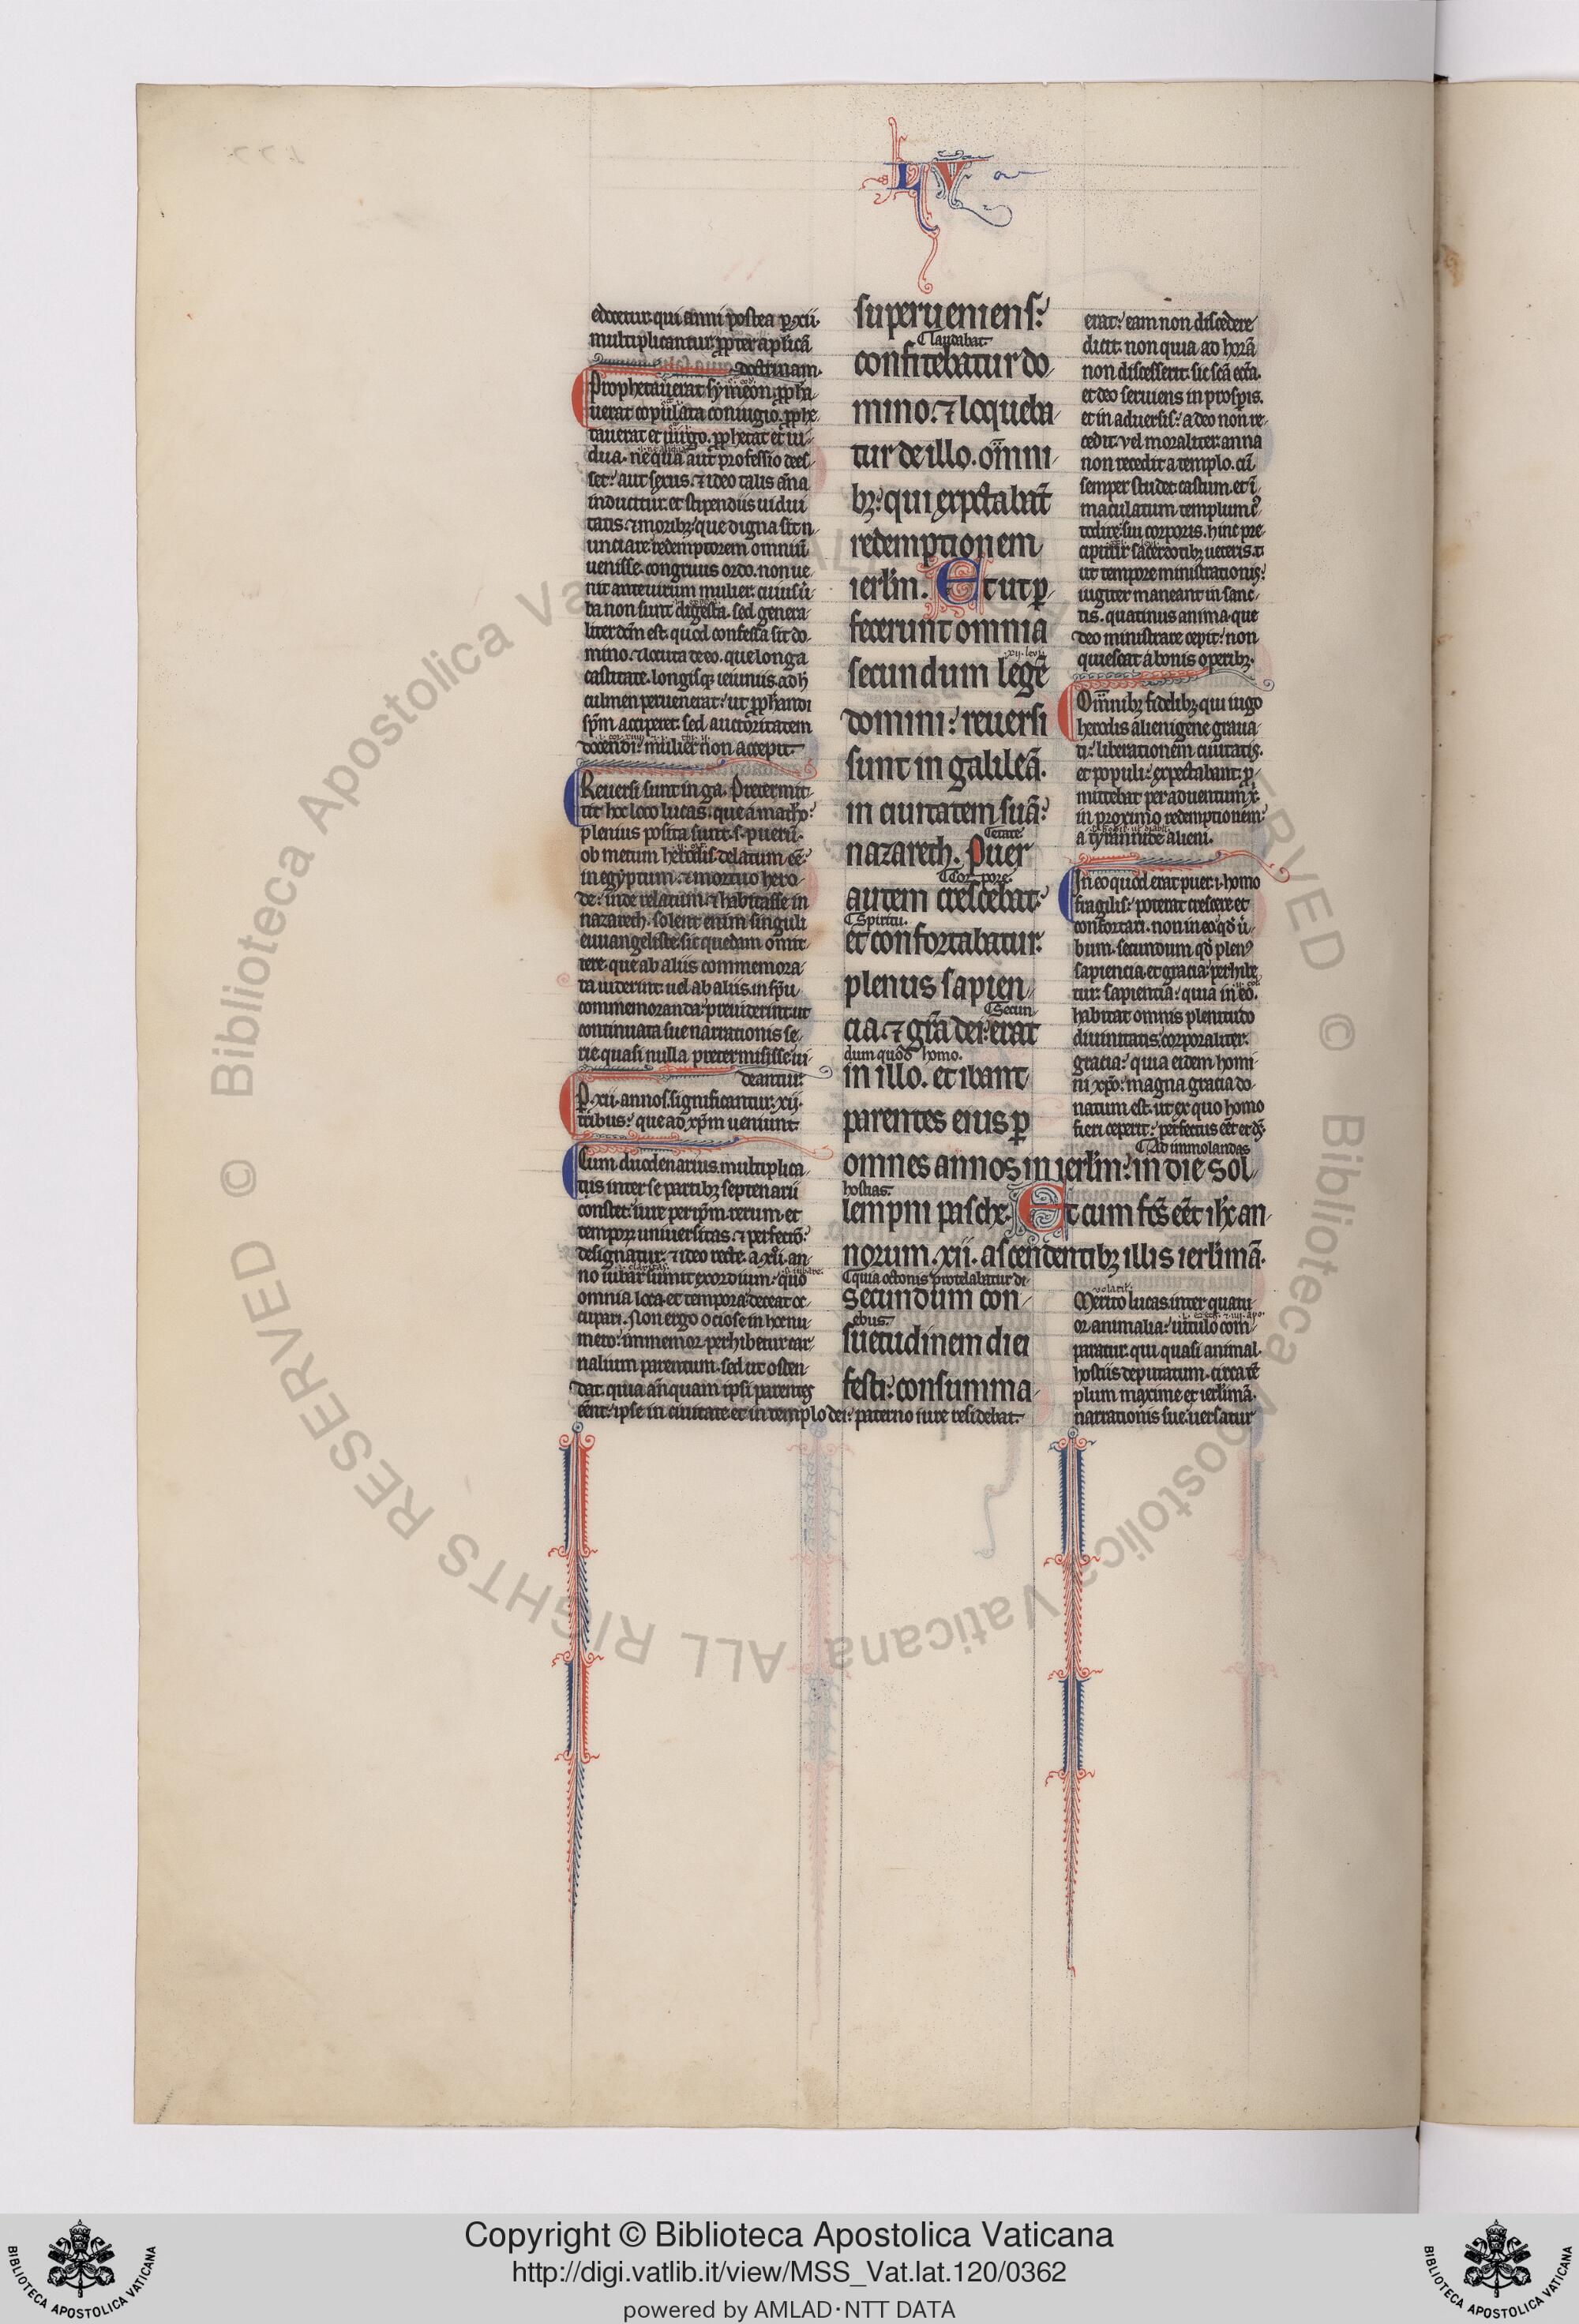 LV
edocetur. qui anni postea .p. xii.
multiplicantur. ꝓpter aplicā
doctrinam.
Prophetauerat symeon. ꝓpha-
uerat copulata coniugio. ꝓphe-
tauerat et uirgo. ꝓphetat et ui-
dua. ne qua aut professio dees-
set: aut sexus. ⁊ ideo talis anna
inducitur. et stipendiis uidui
tatis. ⁊ moribꝫ: que digna sit n-
unciare redemptorem omniū
uenisse. congruus ordo. non ue-
nit ante uirum mulier. cuius ù-
ba non sunt digesta. sed genera-
liter dc̄m est. quod confessa sit do-
mino. ⁊ locuta de eo. que longa
castitate. longisqꝫ ieiuniis. ad h̄
culmen peruenerat: ut ꝓphandi
sp̄m acciperet. sed auctoritatem
docendi: mulier non accepit.
Reuersi sunt in ga. Pretermit-
tit hoc loco lucas. que a matħo:
plenius posita sunt. s. puerū.
ob metum herodis. delatum eē:
in egyptum. ⁊ mortuo hero-
de: inde relatum. ⁊ habitasse in
nazareth. solent enim singuli
euuangeliste sic quedam omit-
tere. que ab aliis commemora-
ta uiderint. uel ab aliis. in sp̄u
commemoranda: preuiderint. ut
continuata sue narrationis se-
rie. quasi nulla pretermisisse ui-
deantur.
P. xii. annos. significantur. xii.
tribus: que ad xp̄m ueniunt.
Cum duodenarius. multiplica-
tis inter se partibꝫ septenarii
constet: iure per ip̄m. rerum. et
temporꝝ uniuersitas. ⁊ perfectio:
designatur. ⁊ ideo recte. a .xii. an-
no iubar sumit exordium: quo
omnia loca. et tempora. deceat oc-
cupari. Non ergo ociose in hoc nu-
mero: immemor perhibetur car-
nalium parentum. sed ut osten-
dat. quia anquam ipsi parentes
eēnt: ipse in ciuitate. et in templo dei: paterno iure residebat.
superueniens:
laudabat.
confitebatur do-
mino. ⁊ loqueba-
tur de illo. omni-
bꝫ: qui expectabāt
redemptionem
ierl̄m. Et ut ꝑ-
fecerunt omnia
secundum legē
domini: reuersi
sunt in galileā.
in ciuitatem suā:
etate
nazareth. Puer
Corpore.
autem crescebat:
Spiritu.
et confortabatur:
plenus sapien-
Secun-
cia. ⁊ gr̄a dei: erat
dum quod homo.
in illo. et ibant
parentes eius ꝑ
Ad immolandas
omnes annos in ierl̄m: in die sol-
hostias.
lempni pasche. Et cum fcs̄ eēt ih̄c an-
norum .xii. ascendentibꝫ illis ierl̄imā.
quia octonis protelabatur di-
secundum con-
ebus.
suetudinem diei
festi: consumma-
erat: eam non discedere
dicit. non quia ad horā
non discesserit. sic scā eccl̄a.
et deo seruiens in prosꝑis.
et in aduersis: a deo non re-
cedit. vel moraliter. anna
non recedit a templo. cū
semper studet. castum. et ī-
maculatum templum
reddere. sui corporis. hinc pre-
cipitur sacerdotibꝫ ueteris. t.
ut tempore ministrationis:
iugiter maneant in sanc-
tis. quatinus anima. que
deo ministrare cepit: non
quiescat a bonis operibꝫ.
Om̄nibꝫ fidelibꝫ. qui iugo
herodis alienigene graua-
ti: liberationem ciuitatis.
et populi: expectabant: ꝓ-
mittebat per aduentum x̄.
in proximo redemptionem:
a tyrannide alieni.
In eo quod erat puer. i. homo
fragilis: poterat crescere et
confortari. non in eo. qd̄ ù-
bum. secundum qd̄ plenꝰ
sapiencia. et gracia: perhibe-
tur: sapientia: quia in eo.
habitat omnis plenitudo
diuinitatis. corporaliter:
gracia: quia eidem homi-
ni xp̄o: magna gracia do-
natum est. ut ex quo homo
fieri ceperit: perfectus eēt et dꝰ.
volatil.
Merito lucas inter quatu-
or animalia: uitulo com-
paratur. qui quasi animal.
hostiis deputatum. circa tē-
plum maxime et ierl̄imā.
narrationis sue: uersatur
Copyright © Biblioteca Apostolica Vaticana
http://digi.vatlib.it/view/MSS_Vat.lat.120/0362
powered by AMLAD·NTT DATA
BIBLIOTECA APOSTOLICA VATICANA
BIBLIOTECA APOSTOLICA VATICANA
© Biblioteca Apostolica Vaticana ALL RIGHTS RESERVED
© Biblioteca Apostolica Vaticana ALL RIGHTS RESERVED